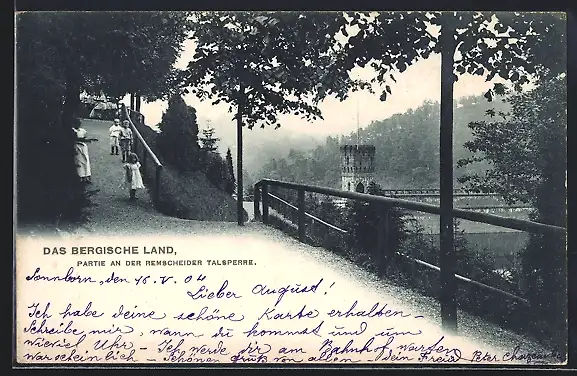 DAS BERGISCHE LAND,
PARTIE AN DER REMSCHEIDER TALSPERRE.
Sonnborn, den 16. V. 04
Lieber August!
Ich habe deine schöne Karte erhalten -
Schreibe mir, wann du kommst und um
wieviel Uhr - Ich werde dir am Bahnhof warten
warscheinlich - Schönen Gruß von allen - Dein
Peter